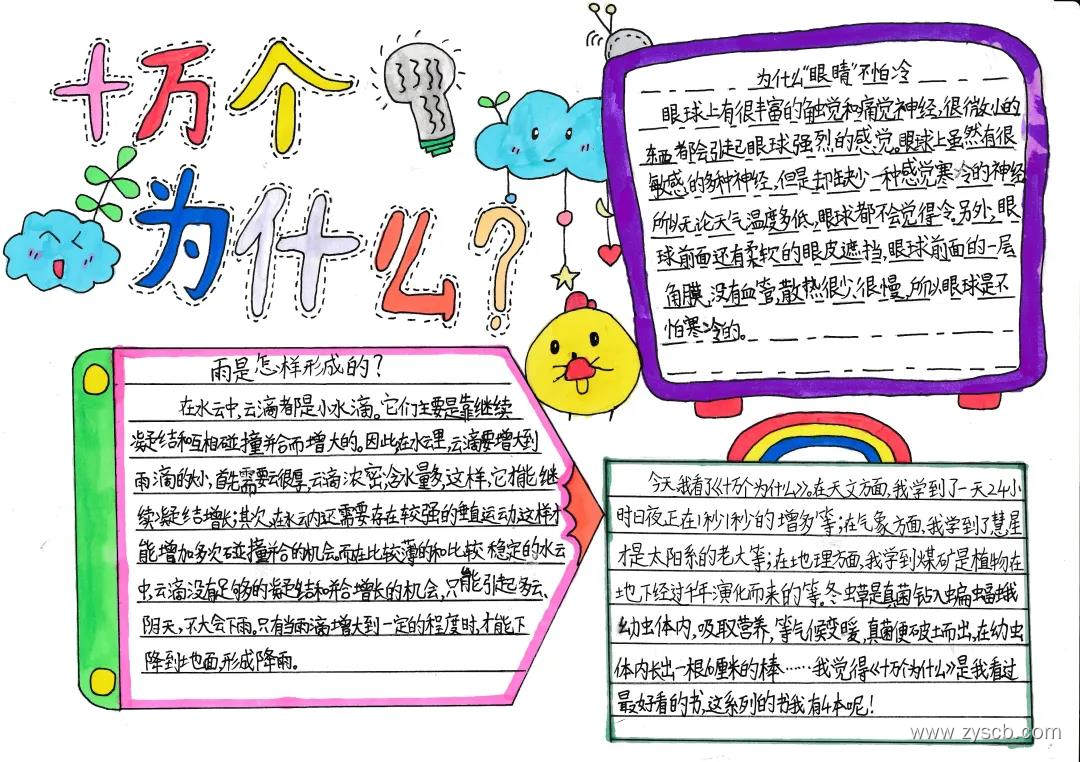 十万个
为什么?
为什么“眼睛”不怕冷
眼球上有很丰富的触觉和痛觉神经,很微小的
东西都会引起眼球强烈的感觉。眼球上虽然有很
敏感的多种神经,但是却缺少一种感觉寒冷的神经
所以无论天气温度多低,眼球都不会觉得冷.另外,眼
球前面还有柔软的眼皮遮挡,眼球前面的一层
角膜,没有血管,散热很少、很慢,所以眼球是不
怕寒冷的。
雨是怎样形成的?
在水云中,云滴都是小水滴。它们主要是靠继续
凝结和互相碰撞并合而增大的。因此,在水云里,云滴要增大到
雨滴的大小,首先需要云很厚,云滴浓密,含水量多,这样,它才能继
续凝结增长;其次,在水云内还需要存在较强的垂直运动,这样才
能增加多次碰撞并合的机会.而在比较薄的和比较稳定的水云
中,云滴没有足够的凝结和并合增长的机会,只能引起多云、
阴天,不大会下雨。只有当雨滴增大到一定的程度时,才能下
降到地面,形成降雨。
今天我看了《十万个为什么》。在天文方面,我学到了一天24小
时日夜正在1秒1秒的增多等;在气象方面,我学到了慧星
才是太阳系的老大等;在地理方面,我学到煤矿是植物在
地下经过千年演化而来的等。冬虫草是真菌钻入蝙蝠蛾
幼虫体内,吸取营养,等气候变暖,真菌便破土而出,在幼虫
体内长出一根6厘米的棒……我觉得《十万个为什么》是我看过
最好看的书,这系列的书我有4本呢!
www.zyscb.com